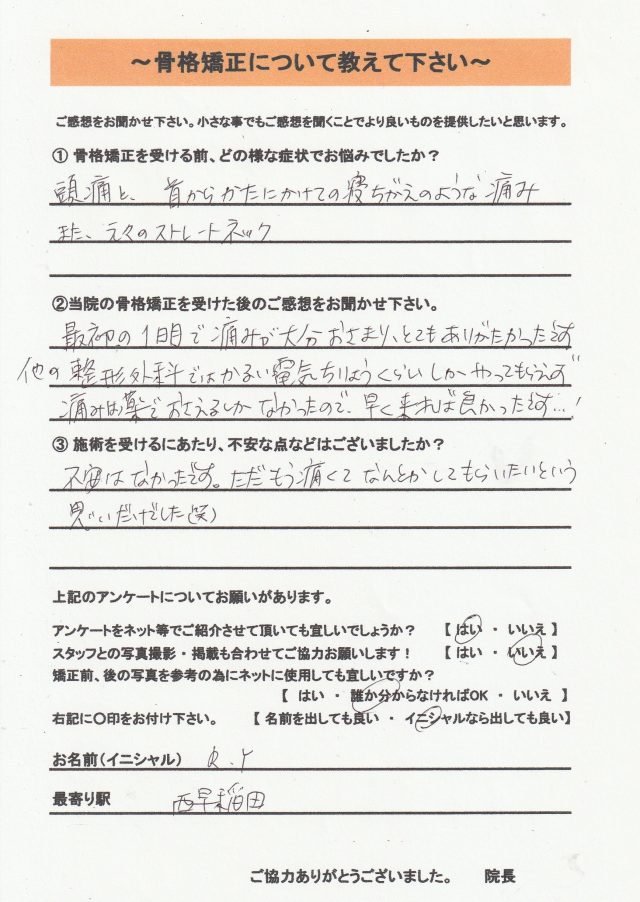 ～骨格矯正について教えて下さい～
ご感想をお聞かせ下さい。小さな事でもご感想を聞くことでより良いものを提供したいと思います。
① 骨格矯正を受ける前、どの様な症状でお悩みでしたか？
頭痛と、首からかたにかけての寝ちがえのような痛み
また、元々のストレートネック
②当院の骨格矯正を受けた後のご感想をお聞かせ下さい。
最初の1日目で痛みが大分おさまり、とてもありがたかったです
他の整形外科ではかるい電気ちりょうくらいしかやってもらえず
痛みはお薬でおさえるしかなかったので、早く来れば良かったです…！
③ 施術を受けるにあたり、不安な点などはございましたか？
不安はなかったです。ただもう痛くてなんとかしてもらいたいという
思いだけでした（笑）
上記のアンケートについてお願いがあります。
アンケートをネット等でご紹介させて頂いても宜しいでしょうか？ 【 はい ・ いいえ 】
スタッフとの写真撮影・掲載も合わせてご協力お願いします！ 【 はい ・ いいえ 】
矯正前、後の写真を参考の為にネットに使用しても宜しいですか？
【 はい ・ 誰か分からなければOK ・ いいえ 】
右記に〇印をお付け下さい。 【 名前を出しても良い ・ イニシャルなら出しても良い】
お名前（イニシャル） R.Y
最寄り駅 西早稲田
ご協力ありがとうございました。 院長